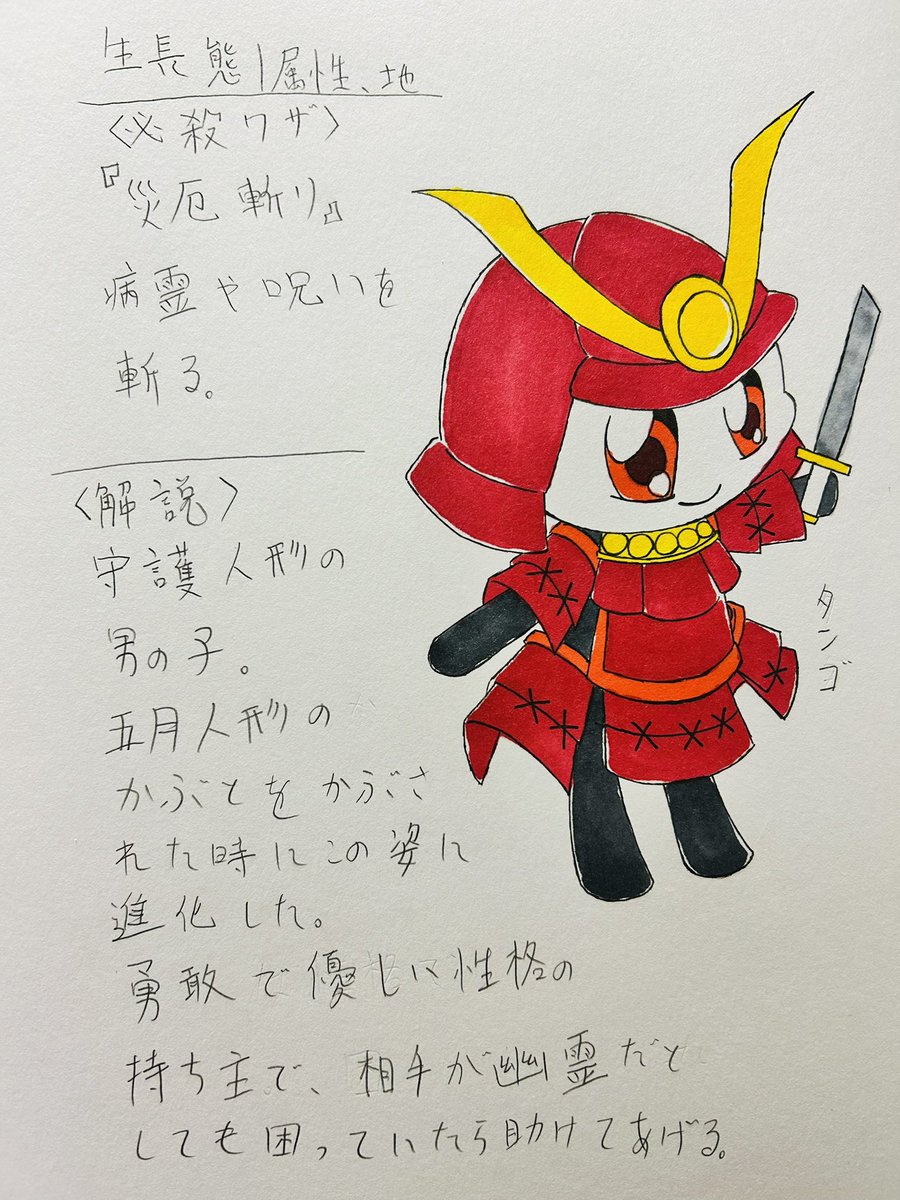 生長態|属性、地
〈必殺ワザ〉
『災厄斬り』
病霊や呪いを
斬る。
〈解説〉
守護人形の
男の子。
五月人形の
かぶとをかぶさ
れた時にこの姿に
進化した。
勇敢で優しい性格の
持ち主で、相手が幽霊だと
しても困っていたら助けてあげる。
タンゴ